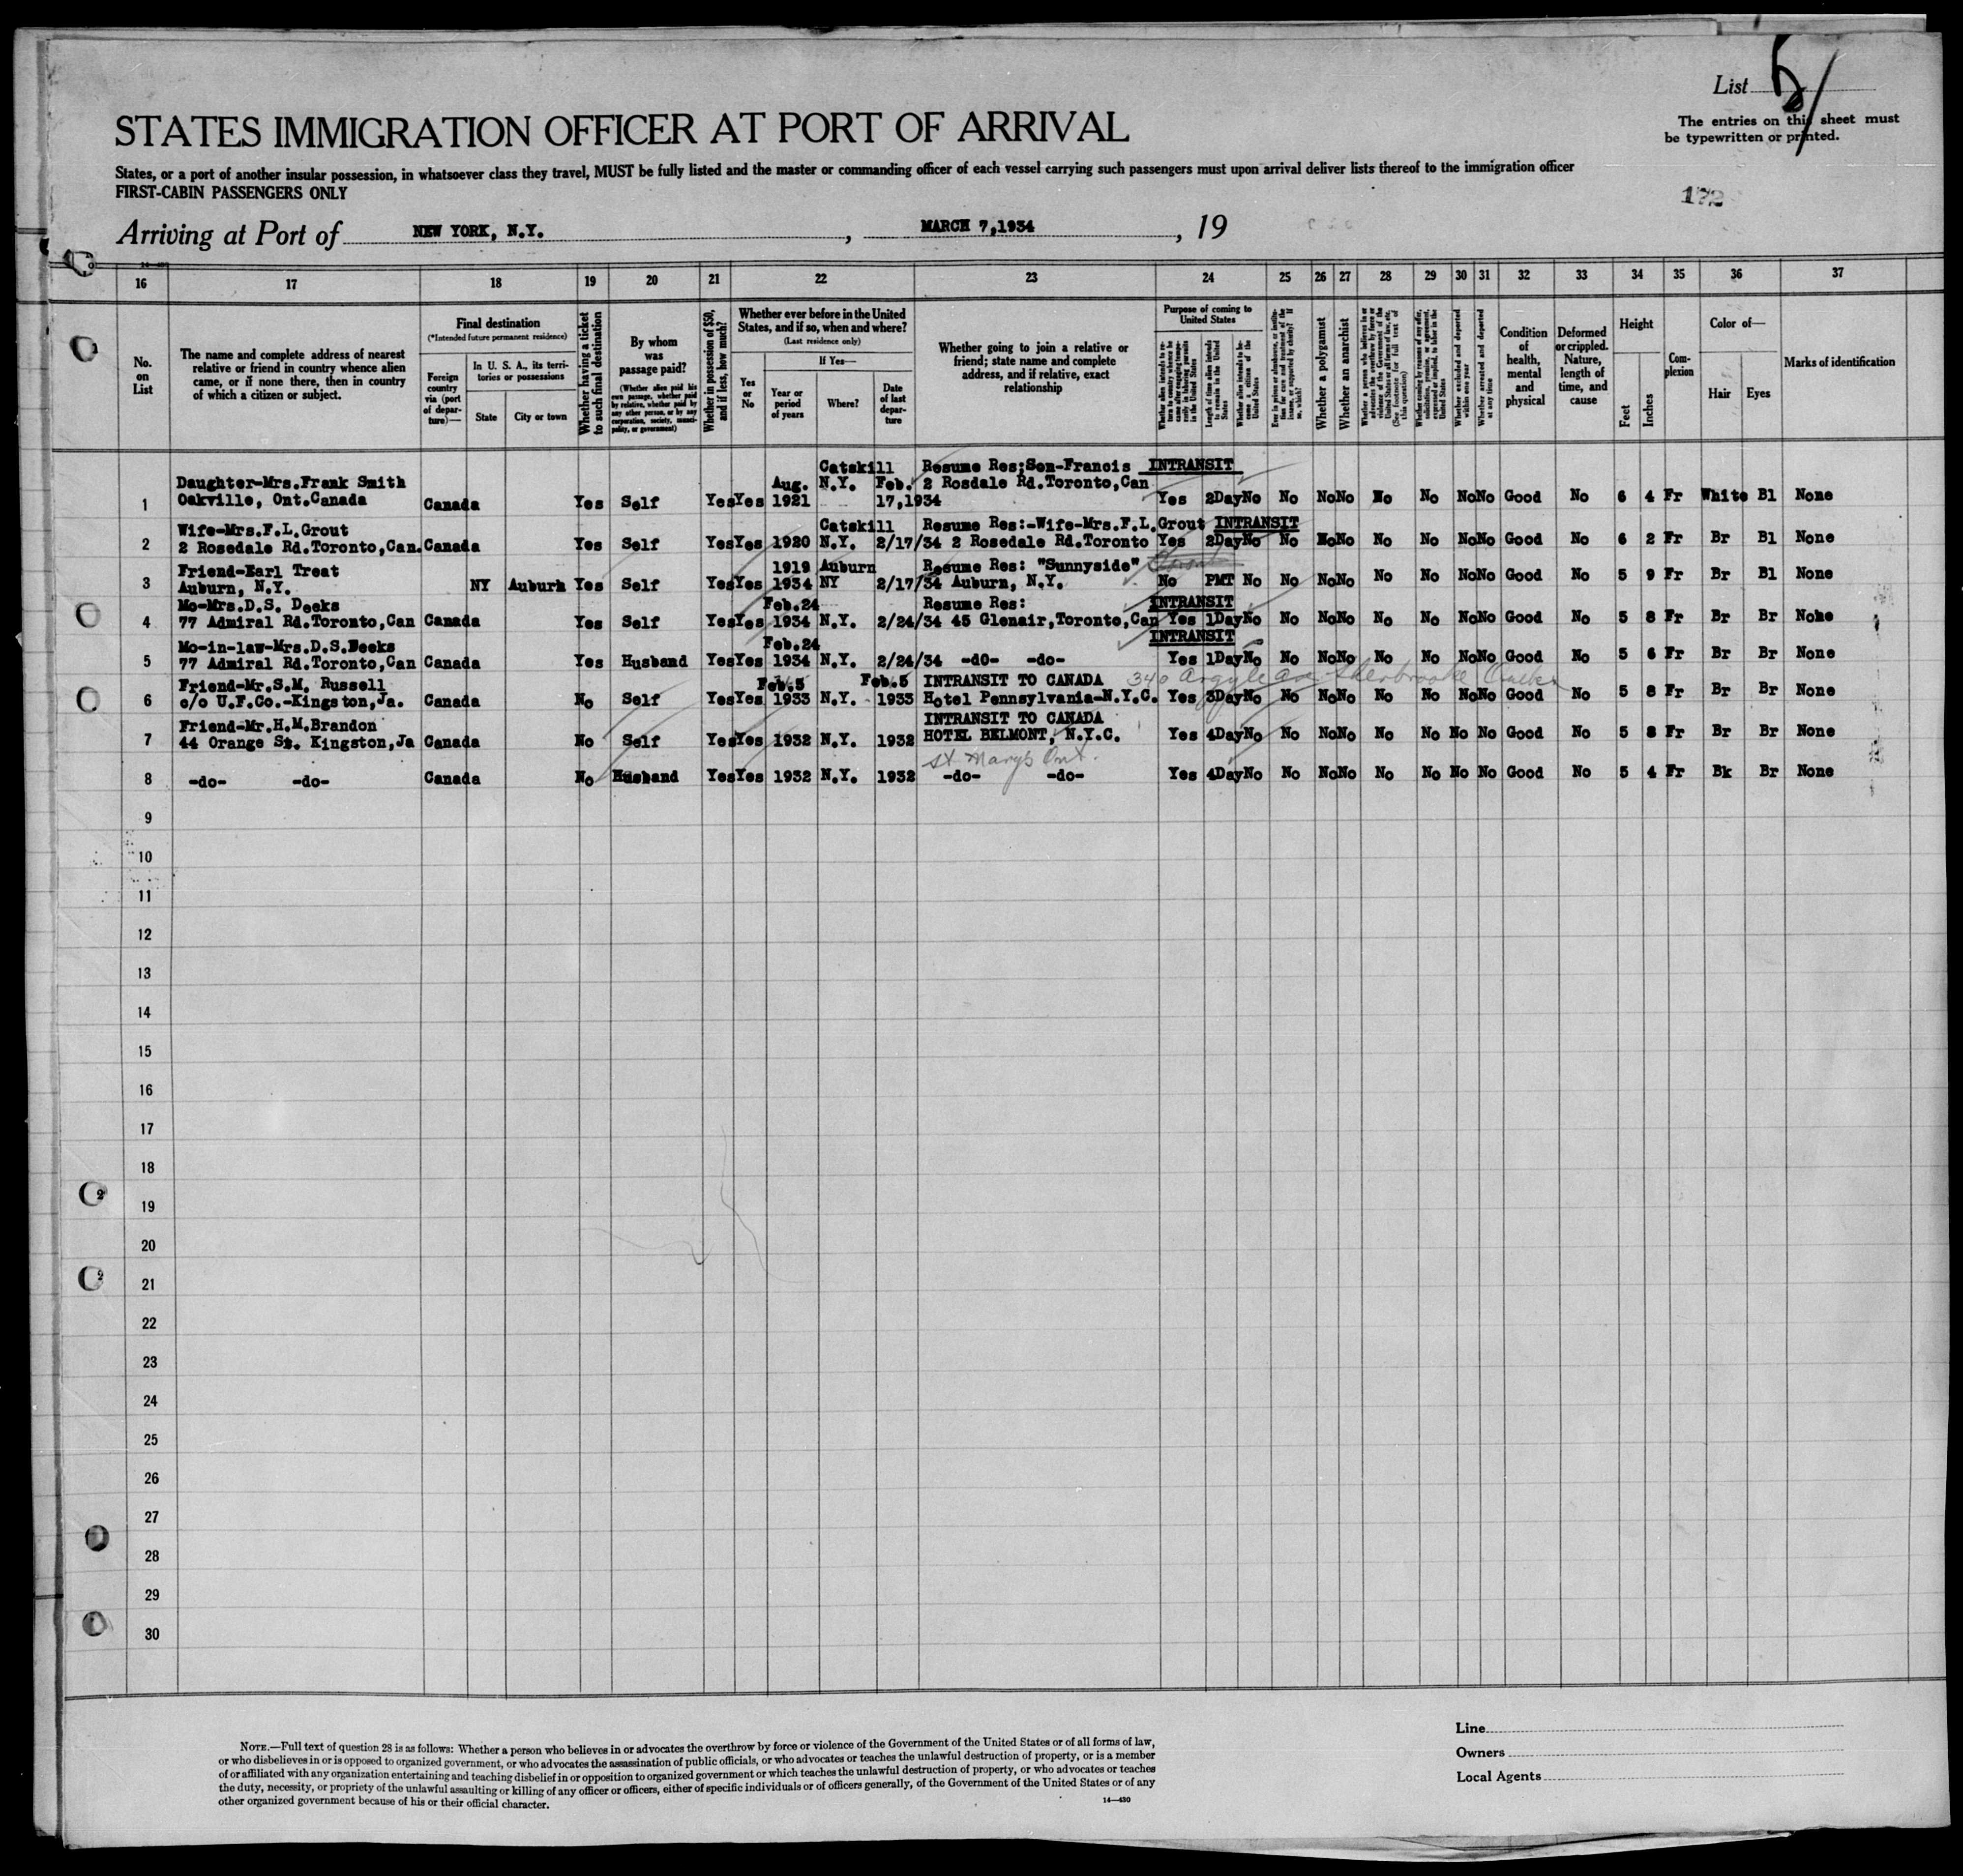 List 5
The entries on this sheet must
be typewritten or printed.
STATES IMMIGRATION OFFICER AT PORT OF ARRIVAL
States, or a port of another insular possession, in whatsoever class they travel, MUST be fully listed and the master or commanding officer of each vessel carrying such passengers must upon arrival deliver lists thereof to the immigration officer
FIRST-CABIN PASSENGERS ONLY
172
Arriving at Port of NEW YORK, N.Y. , MARCH 7,1934 , 19
16 17 18 19 20 21 22 23 24 25 26 27 28 29 30 31 32 33 34 35 36 37
No. on List
The name and complete address of nearest
relative or friend in country whence alien
came, or if none there, then in country
of which a citizen or subject.
Final destination
(*Intended future permanent residence)
Foreign country via (port of departure)—
In U. S. A., its territories or possessions
State City or town
Whether having a ticket to such final destination
By whom was passage paid?
(Whether alien paid his own passage, whether paid by relative, whether paid by any other person, or by any corporation, society, municipality, or government)
Whether in possession of $50, and if less, how much?
Whether ever before in the United States, and if so, when and where?
(Last residence only)
Yes or No
If Yes—
Year or period of years
Where?
Date of last departure
Whether going to join a relative or
friend; state name and complete
address, and if relative, exact
relationship
Purpose of coming to United States
Whether alien intends to return to country whence he came after engaging temporarily in laboring pursuits in the United States
Length of time alien intends to remain in the United States
Whether alien intends to become a citizen of the United States
Whether a polygamist
Whether an anarchist
Whether excluded and deported within one year
Whether arrested and deported at any time
Condition of health, mental and physical
Deformed or crippled. Nature, length of time, and cause
Height
Feet Inches
Complexion
Color of—
Hair Eyes
Marks of identification
Catskill Resume Res;Son-Francis INTRANSIT
Daughter-Mrs.Frank Smith Aug. N.Y. Feb. 2 Rosdale Rd.Toronto,Can
1 Oakville, Ont.Canada Canada Yes Self Yes Yes 1921 17,1934 Yes 2Day No No No No No No No No Good No 6 4 Fr White Bl None
Wife-Mrs.F.L.Grout Catskill Resume Res:-Wife-Mrs.F.L.Grout INTRANSIT
2 2 Rosedale Rd.Toronto,Can. Canada Yes Self Yes Yes 1920 N.Y. 2/17/34 2 Rosedale Rd.Toronto Yes 2Day No No No No No No No No Good No 6 2 Fr Br Bl None
Friend-Earl Treat 1919 Auburn Resume Res: "Sunnyside"
3 Auburn, N.Y. NY Auburn Yes Self Yes Yes 1934 NY 2/17/34 Auburn, N.Y. No PMT No No No No No No No No Good No 5 9 Fr Br Bl None
Mo-Mrs.D.S. Deeks Feb.24 Resume Res: INTRANSIT
4 77 Admiral Rd.Toronto,Can Canada Yes Self Yes Yes 1934 N.Y. 2/24/34 45 Glenair,Toronto,Can Yes 1Day No No No No No No No No Good No 5 8 Fr Br Br None
Mo-in-law-Mrs.D.S.Deeks Feb.24 INTRANSIT
5 77 Admiral Rd.Toronto,Can Canada Yes Husband Yes Yes 1934 N.Y. 2/24/34 -do- -do- Yes 1Day No No No No No No No No Good No 5 6 Fr Br Br None
Friend-Mr.S.M. Russell Feb.5 Feb.5 INTRANSIT TO CANADA 340 Argyle Ave Sherbrooke Quebec
6 c/o U.F.Co.-Kingston,Ja. Canada No Self Yes Yes 1933 N.Y. 1933 Hotel Pennsylvania-N.Y.C. Yes 3Day No No No No No No No No Good No 5 8 Fr Br Br None
Friend-Mr.H.M.Brandon INTRANSIT TO CANADA
7 44 Orange St. Kingston,Ja Canada No Self Yes Yes 1932 N.Y. 1932 HOTEL BELMONT, N.Y.C. Yes 4Day No No No No No No No No Good No 5 8 Fr Br Br None
St Mary's Ont.
8 -do- -do- Canada No Husband Yes Yes 1932 N.Y. 1932 -do- -do- Yes 4Day No No No No No No No No Good No 5 4 Fr Bk Br None
9
10
11
12
13
14
15
16
17
18
19
20
21
22
23
24
25
26
27
28
29
30
NOTE.—Full text of question 28 is as follows: Whether a person who believes in or advocates the overthrow by force or violence of the Government of the United States or of all forms of law,
or who disbelieves in or is opposed to organized government, or who advocates the assassination of public officials, or who advocates or teaches the unlawful destruction of property, or is a member
of or affiliated with any organization entertaining and teaching disbelief in or opposition to organized government or which teaches the unlawful destruction of property, or who advocates or teaches
the duty, necessity, or propriety of the unlawful assaulting or killing of any officer or officers, either of specific individuals or of officers generally, of the Government of the United States or of any
other organized government because of his or their official character.
14—430
Line
Owners
Local Agents